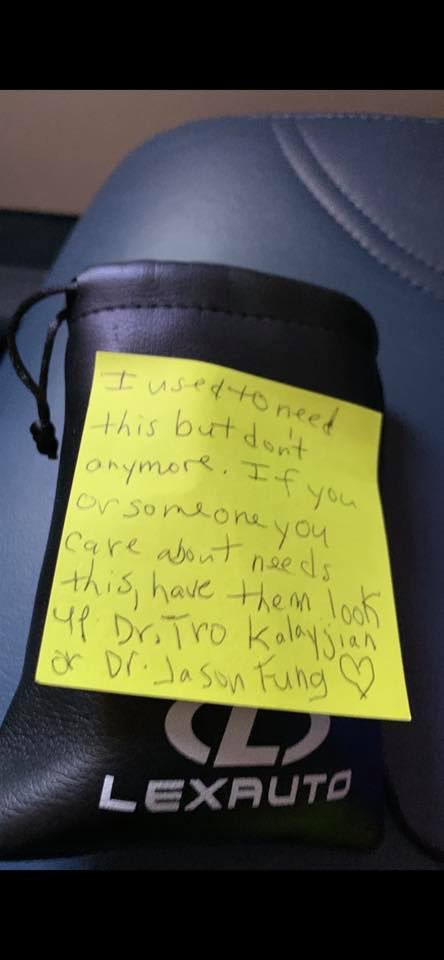 I used to need
this but don't
anymore. If you
or someone you
care about needs
this, have them look
up Dr. Tro Kalayjian
or Dr. Jason Fung ♡
L
LEXAUTO